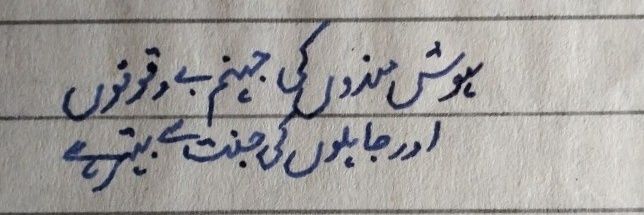 ہوش مندوں کی جہنم بے وقوفوں
اور جاہلوں کی جنت سے بہتر ہے